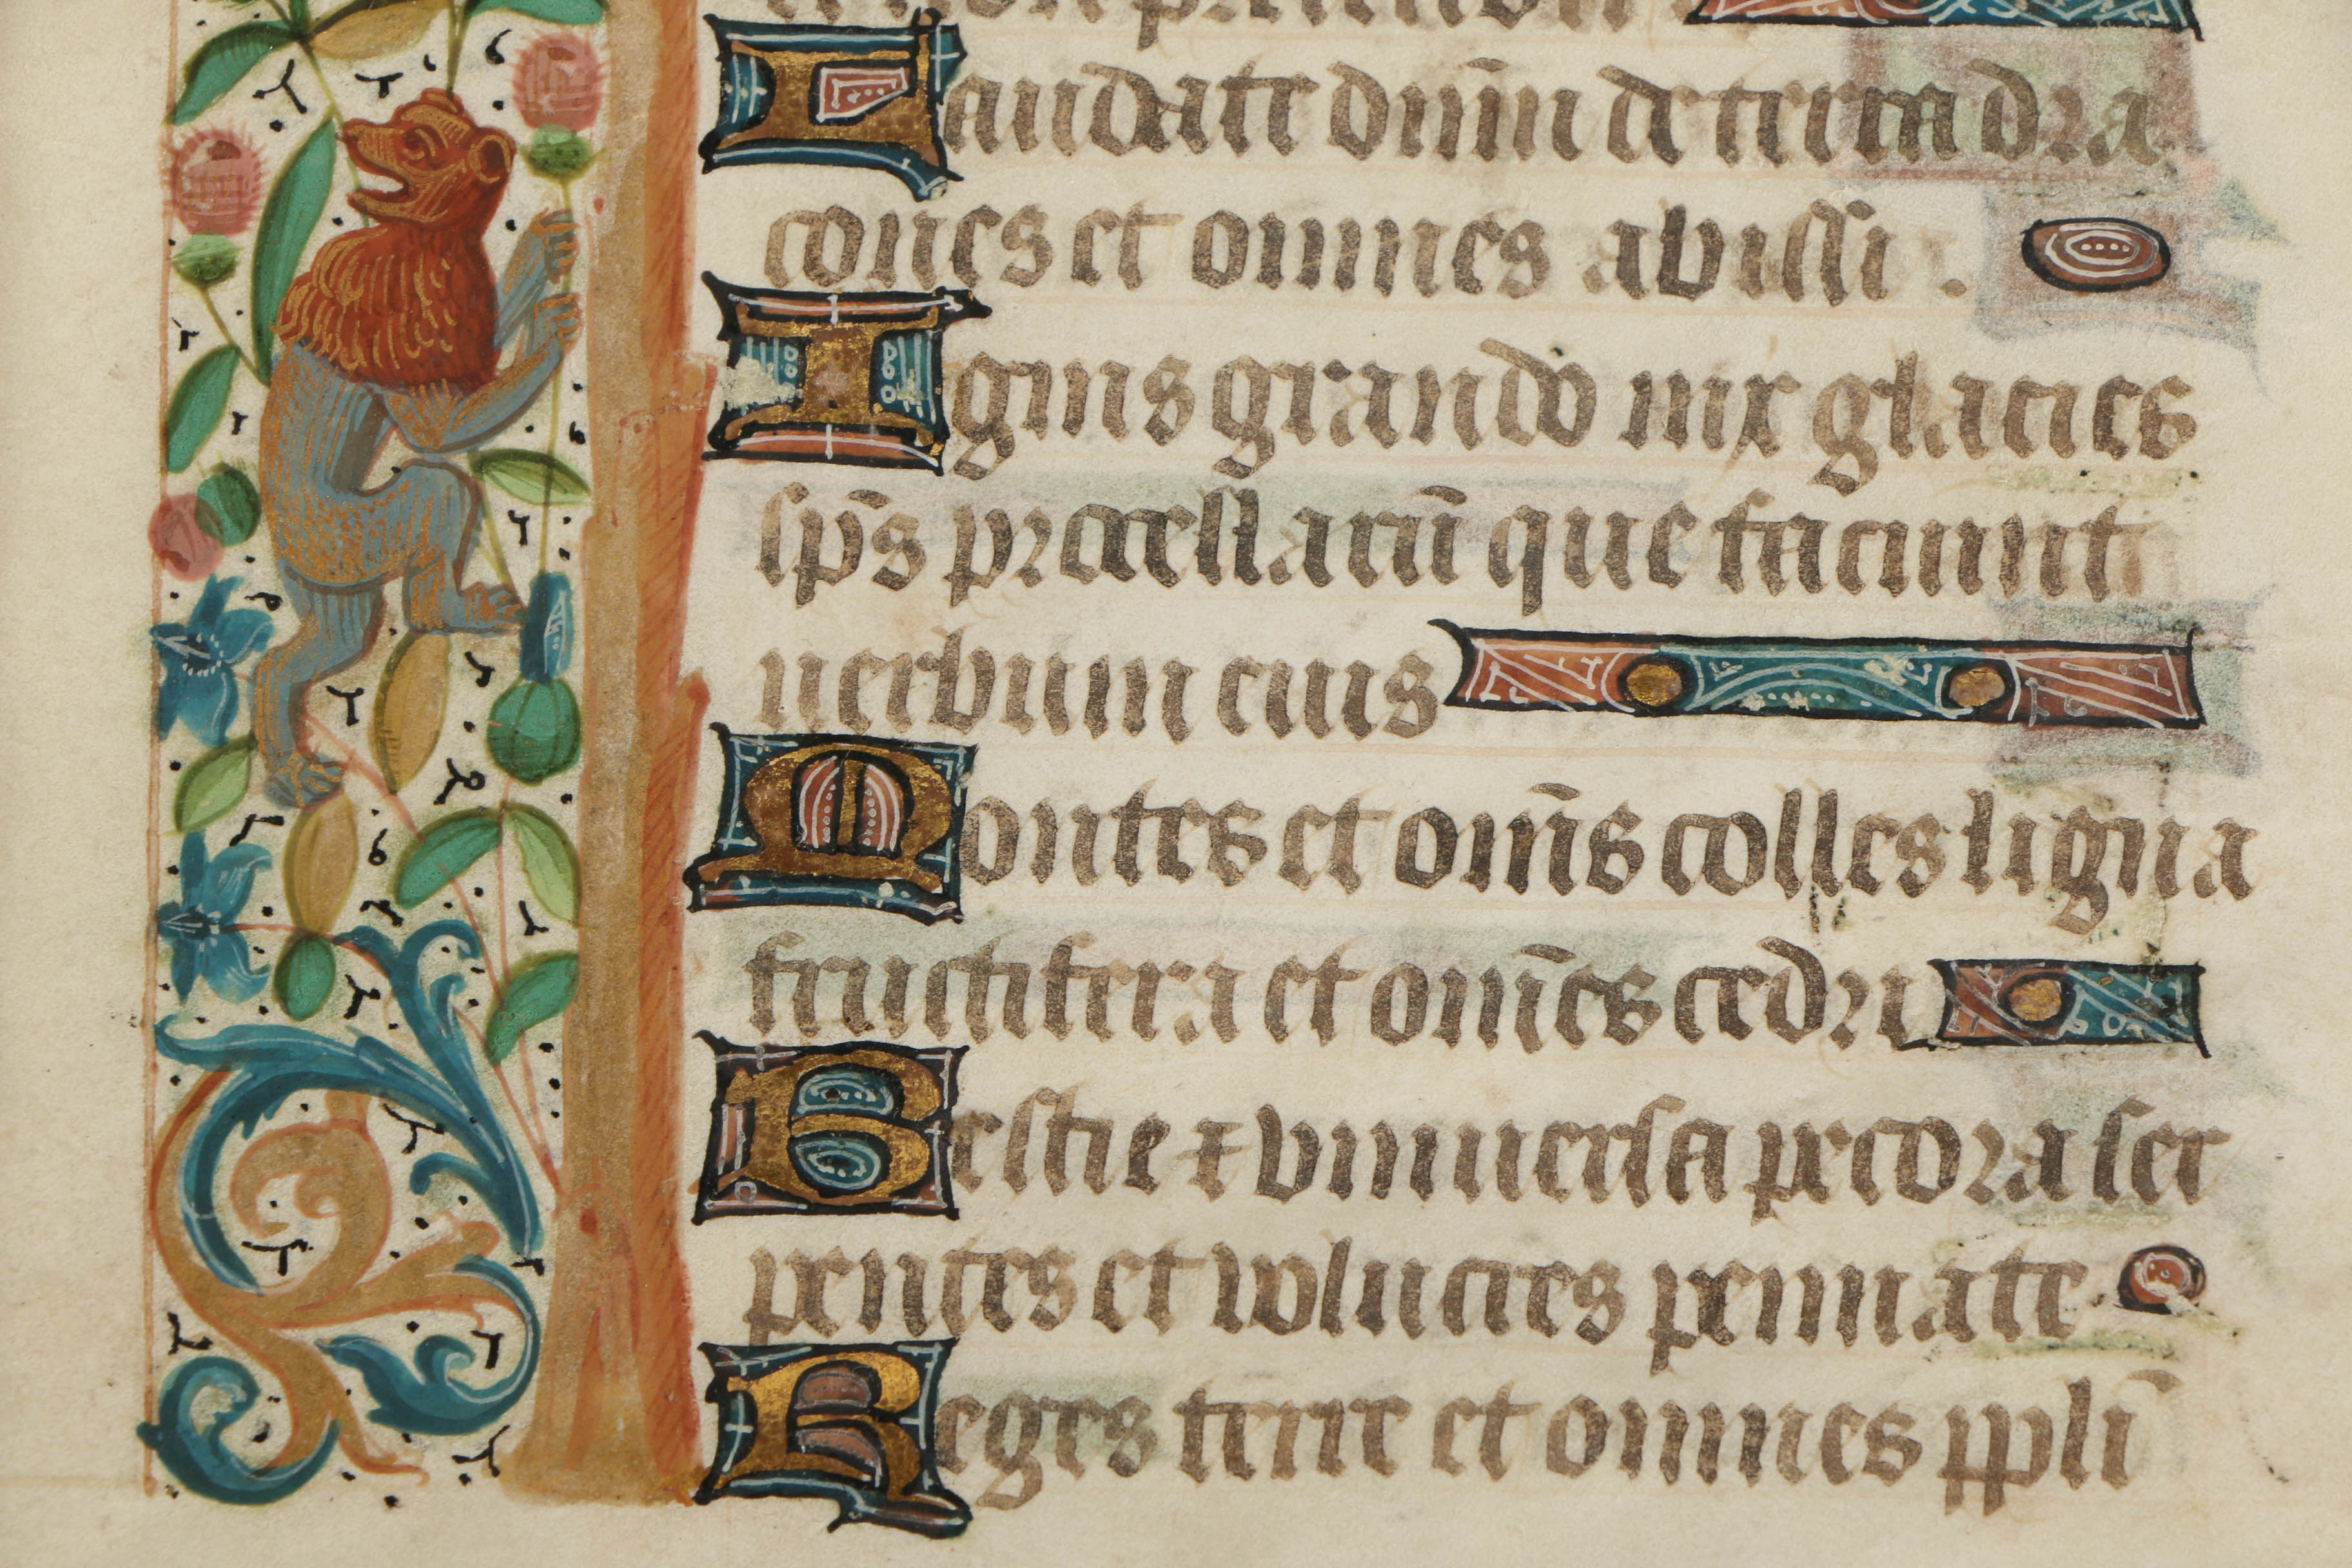 et non preteribit
Laudate dnm̄ de terra dra
cones et omnes abissi.
Ignis grando nix glacies
sp̄s procellarū que faciunt
uerbum eius
Montes et om̄s colles ligna
fructifera et om̄es cedri
Bestie ⁊ vniuersa pecora ser
pentes et volucres pennate
Reges terre et omnes ppl̄i